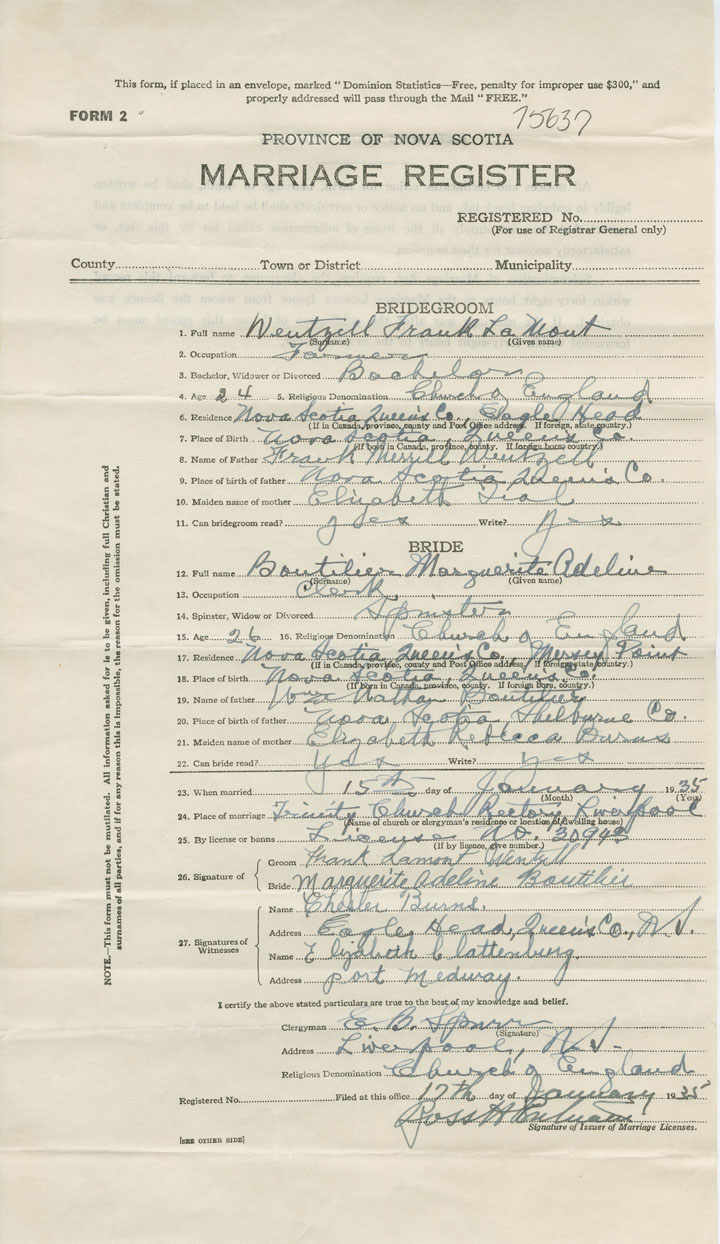 This form, if placed in an envelope, marked "Dominion Statistics—Free, penalty for improper use $300," and
properly addressed will pass through the Mail "FREE."
FORM 2
15637
PROVINCE OF NOVA SCOTIA
MARRIAGE REGISTER
REGISTERED No.
(For use of Registrar General only)
County Town or District Municipality
BRIDEGROOM
1. Full name Wentzell Frank La Mont
(Surname) (Given name)
2. Occupation Farmer
3. Bachelor, Widower or Divorced Bachelor
4. Age 24 5. Religious Denomination Church of England
6. Residence Nova Scotia Queen's Co., Eagle Head
(If in Canada, province, county and Post Office address. If foreign, state country.)
7. Place of Birth Nova Scotia, Queen's Co.
(If born in Canada, province, county. If foreign born, country.)
8. Name of Father Frank Merrill Wentzell
9. Place of birth of father Nova Scotia Queen's Co.
10. Maiden name of mother Elizabeth
11. Can bridegroom read? yes Write? yes
BRIDE
12. Full name Boutilier Marguerite Adeline
(Surname) (Given name)
13. Occupation Clerk
14. Spinster, Widow or Divorced Spinster
15. Age 26 16. Religious Denomination Church of England
17. Residence Nova Scotia Queen's Co., Mersey Point
(If in Canada, province, county and Post Office address. If foreign state country.)
18. Place of birth Nova Scotia, Queen's Co.
(If born in Canada, province, county. If foreign born, country.)
19. Name of father Wm Nathan Boutilier
20. Place of birth of father Nova Scotia, Shelburne Co.
21. Maiden name of mother Elizabeth Rebecca Burns
22. Can bride read? yes Write? yes
23. When married 15th day of January 1935
(Month) (Year)
24. Place of marriage Trinity Church Rectory, Liverpool
(Name of church or clergyman's residence or location of dwelling house)
25. By license or banns License No. 30942
(If by licence, give number.)
26. Signature of Groom Frank Lamont Wentzell
Bride Marguerite Adeline Boutilier
27. Signatures of Witnesses
Name Chesler Burns.
Address Eagle Head, Queen's Co., N.S.
Name Elizabeth Clattenburg.
Address Port Medway.
I certify the above stated particulars are true to the best of my knowledge and belief.
Clergyman E. B. Spurr
(Signature)
Address Liverpool, N.S.
Religious Denomination Church of England
Registered No. Filed at this office 17th day of January 1935
Ross H
Signature of Issuer of Marriage Licenses.
[SEE OTHER SIDE]
NOTE.—This form must not be mutilated. All information asked for is to be given, including full Christian and
surnames of all parties, and if for any reason this is impossible, the reason for the omission must be stated.